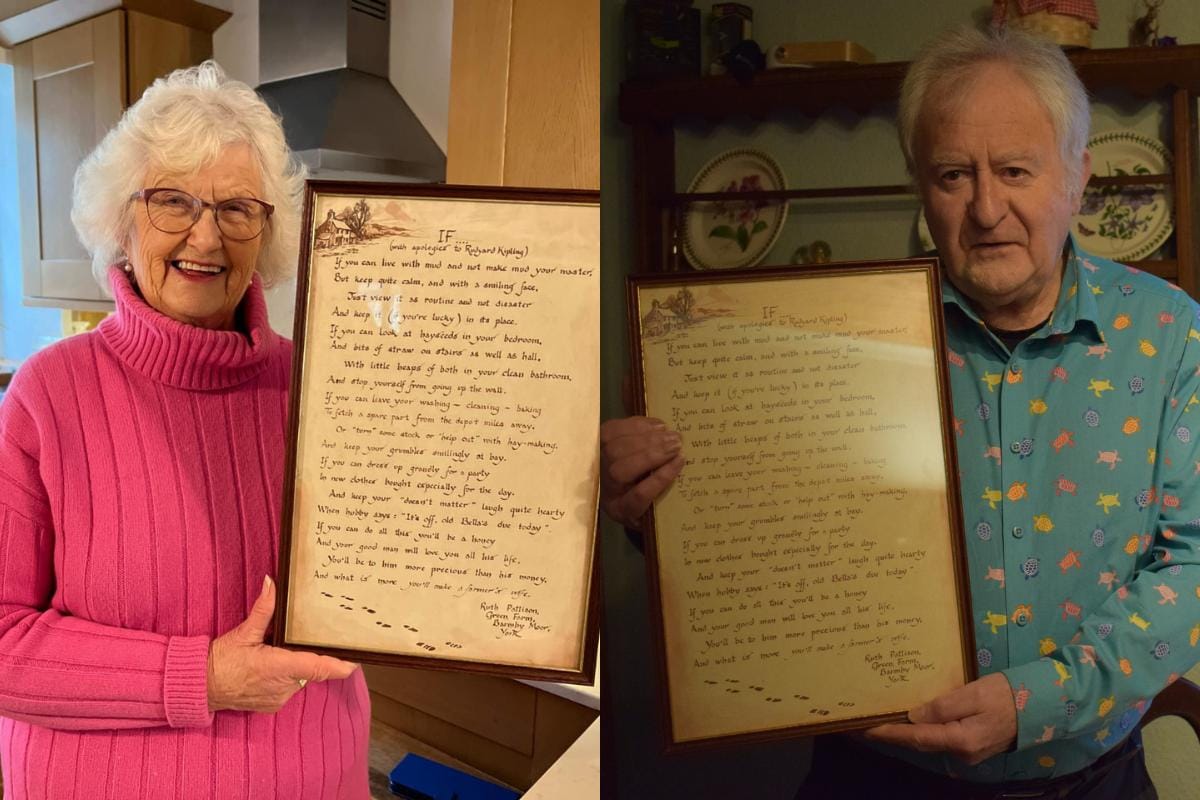 IF....
(with apologies to Rudyard Kipling)
If you can live with mud and not make mud your master,
But keep quite calm, and with a smiling face,
Just view it as routine and not disaster
And keep it (if you're lucky) in its place.
If you can look at hayseeds in your bedroom,
And bits of straw on stairs as well as hall,
With little heaps of both in your clean bathroom,
And stop yourself from going up the wall.
If you can leave your washing – cleaning – baking
To fetch a spare part from the depot miles away,
Or "turn" some stock or "help out" with hay-making,
And keep your grumbles smilingly at bay.
If you can dress up grandly for a party
In new clothes bought especially for the day,
And keep your "doesn't matter" laugh quite hearty
When hobby says: "It's off, old Bella's due today"
If you can do all this you'll be a honey
And your good man will love you all his life,
You'll be to him more precious than his money,
And what is more you'll make a farmer's wife.
Ruth Pattison,
Green Farm,
Barmby Moor,
York
IF....
(with apologies to Rudyard Kipling)
If you can live with mud and not make mud your master,
But keep quite calm, and with a smiling face,
Just view it as routine and not disaster
And keep it (if you're lucky) in its place.
If you can look at hayseeds in your bedroom,
And bits of straw on stairs as well as hall,
With little heaps of both in your clean bathroom,
And stop yourself from going up the wall.
If you can leave your washing – cleaning – baking
To fetch a spare part from the depot miles away,
Or "turn" some stock or "help out" with hay-making,
And keep your grumbles smilingly at bay.
If you can dress up grandly for a party
In new clothes bought especially for the day,
And keep your "doesn't matter" laugh quite hearty
When hobby says: "It's off, old Bella's due today"
If you can do all this you'll be a honey
And your good man will love you all his life,
You'll be to him more precious than his money,
And what is more you'll make a farmer's wife.
Ruth Pattison,
Green Farm,
Barmby Moor,
York